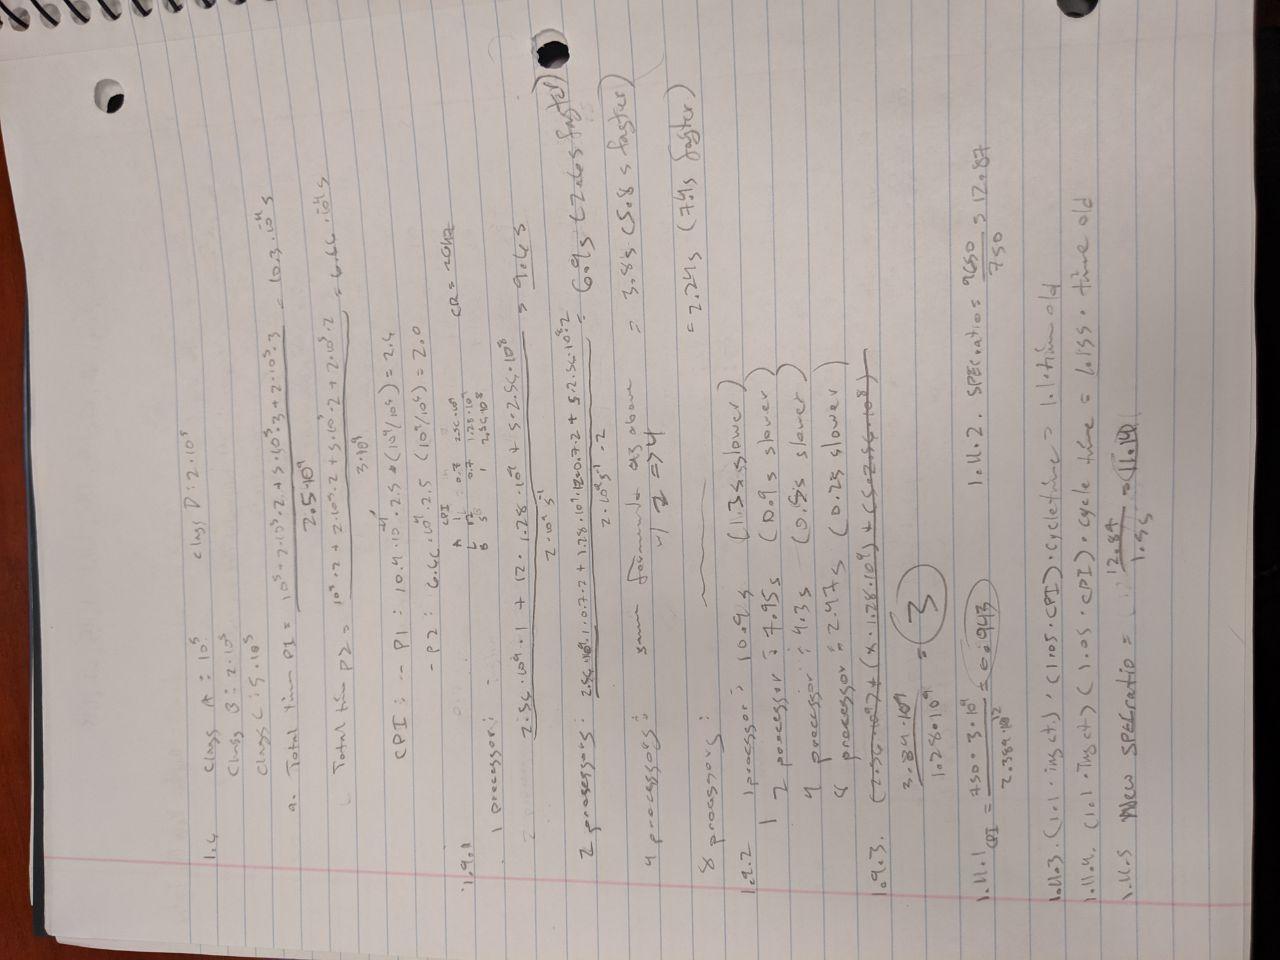 1.6 class A : 10⁵ class D : 2·10⁵
class B : 2·10⁵
class C : 5·10⁵
a. Total time P1 = 10⁵ + 2·10⁵·2 + 5·10⁵·3 + 2·10⁵·3 = 10.3·10⁻⁴ s
2.5·10⁹
Total time P2 = 10⁵·2 + 2·10⁵·2 + 5·10⁵·2 + 2·10⁵·2 = 6.66·10⁻⁴ s
3·10⁹
CPI : - P1 : 10.4·10⁻⁴·2.5*(10⁹/10⁶) = 2.6
- P2 : 6.66·10⁻⁴·2.5 (10⁹/10⁶) = 2.0
1.9.1
CPI
A 1 0.7 2.56·10⁹ CR = 2GHz
L 12 0.7 1.28·10⁹
B 5 1 2.56·10⁸
1 processor:
2.56·10⁹·1 + 12·1.28·10⁹ + 5·2.56·10⁸ = 9.6 s
2·10⁹ s⁻¹
2 processors: 2.56·10⁹·1·0.7·2 + 1.28·10⁹·12·0.7·2 + 5·2.56·10⁸·2 = 6.9s (2.6s faster)
2·10⁹ s⁻¹·2
4 processors: same formula as above = 3.8s (5.8 s faster)
w/ 2 => 4
8 processors: = 2.24s (7.4s faster)
1.9.2 1 processor: 10.9 s (1.3s slower)
2 processor : 7.95 s (0.9 s slower)
4 processor : 4.3s (0.5s slower)
8 processor : 2.47s (0.2s slower)
1.9.3. (2.56·10⁹)+(x·1.28·10⁹)+(5·2.56·10⁸)
3.84·10⁹ = 3
1.28·10⁹
1.11.1 CPI = 750·3·10⁹ = 0.943 1.11.2. SPECratio = 9650 = 12.87
2.389·10¹² 750
1.11.3. (1.1·inst.)·(1.05·CPI)·cycle time = 1.1·time old
1.11.4. (1.1·Inst) (1.05·CPI)·cycle time = 1.155·time old
1.11.5 New SPECratio = 12.87 = 11.14